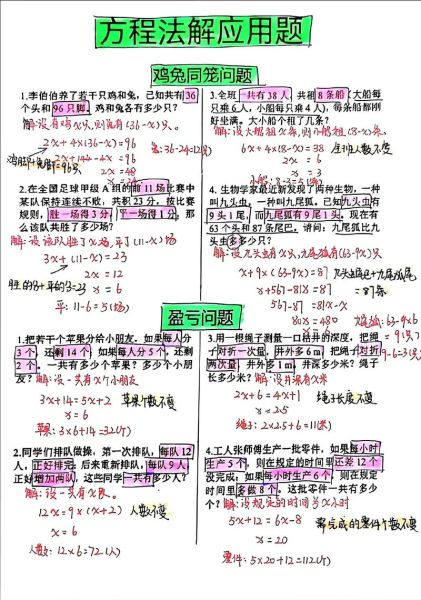 方程法解应用题
鸡兔同笼问题
1.李伯伯养了若干只鸡和兔,已知共有36
个头和96只脚。鸡和兔各有多少只?
解:设有鸡x只,则兔有(36-x)只。
2x+4x(36-x)=96
2x+144-4x=96
2x=48
兔:36-24=12(只)
2.在全国足球甲级A组的前11场比赛中
某队保持连续不败,共积23分,按比赛
规则,胜一场得3分,平一场得1分,那
么该队共胜了多少场?
解:设该队胜x场,平了(11-x)场
3x+(11-x)=23
2x=12
x=6
平:11-6=5(场)
3.全班一共有38人,共租8条船(大船每
只乘6人,小船每只乘4人),每条船都刚
好坐满。大小船个租了几条?
解:设大船租x条,则小船租(8-x)条。
6x+4x(8-x)=38
全班人数不变
2x=6
x=3
4.生物学家最近新发现了两种生物,一种
叫九头虫,一种叫九尾狐。已知九头虫有
9头1尾,而九尾狐有9尾1头。现在有
63个头和87条尾巴。请问:九尾狐比九
头虫多多少只?
解:设九头虫有x只,九尾狐有(63-9x)只
x+9x(63-9x)=87
九头虫尾巴+九尾狐尾
=87条
x+567-81x=87
567-87=81x-x
80x=480
x=6
盈亏问题
1.把若干个苹果分给小朋友。如果每人分
3个,还剩14个;如果每人分5个,还剩
2个。一共有多少个苹果?多少个小朋
友?
解:设一共有x个小朋友
3x+14=5x+2
苹果个数不变
x=6
苹果:3x6+14=32(个)
2.同学们排队做操,第一次排队,每队12
人,正好排完;后来重新排队,每队9人,
正好增加两队,这些同学一共有多少人?
解:设一共有x队。
12x=9x(x+2)
人数不变
x=6
人数:12x6=72(人)
3.用一根绳子测量一口枯井的深度,把绳
子对折一次量,井外多6m,把绳子对折
两次量,井外多1m,井深多少米?绳子
长多少米?
解:设井深有x米
2x+6=4x+1
绳子长度不变
x=2.5
绳子:2x2.5+6=11(米)
4.工人张师傅生产一批零件,如果每小时
生产5个,则在规定的时间里还差12个
没完成,如果每小时生产6个,则在规定
时间里多做8个。这批零件一共有多少
个?
解:设规定的时间为x小时
5x+12=6x-8
要完成的零件个数不变
x=20
零件:5x20+12=112(个)